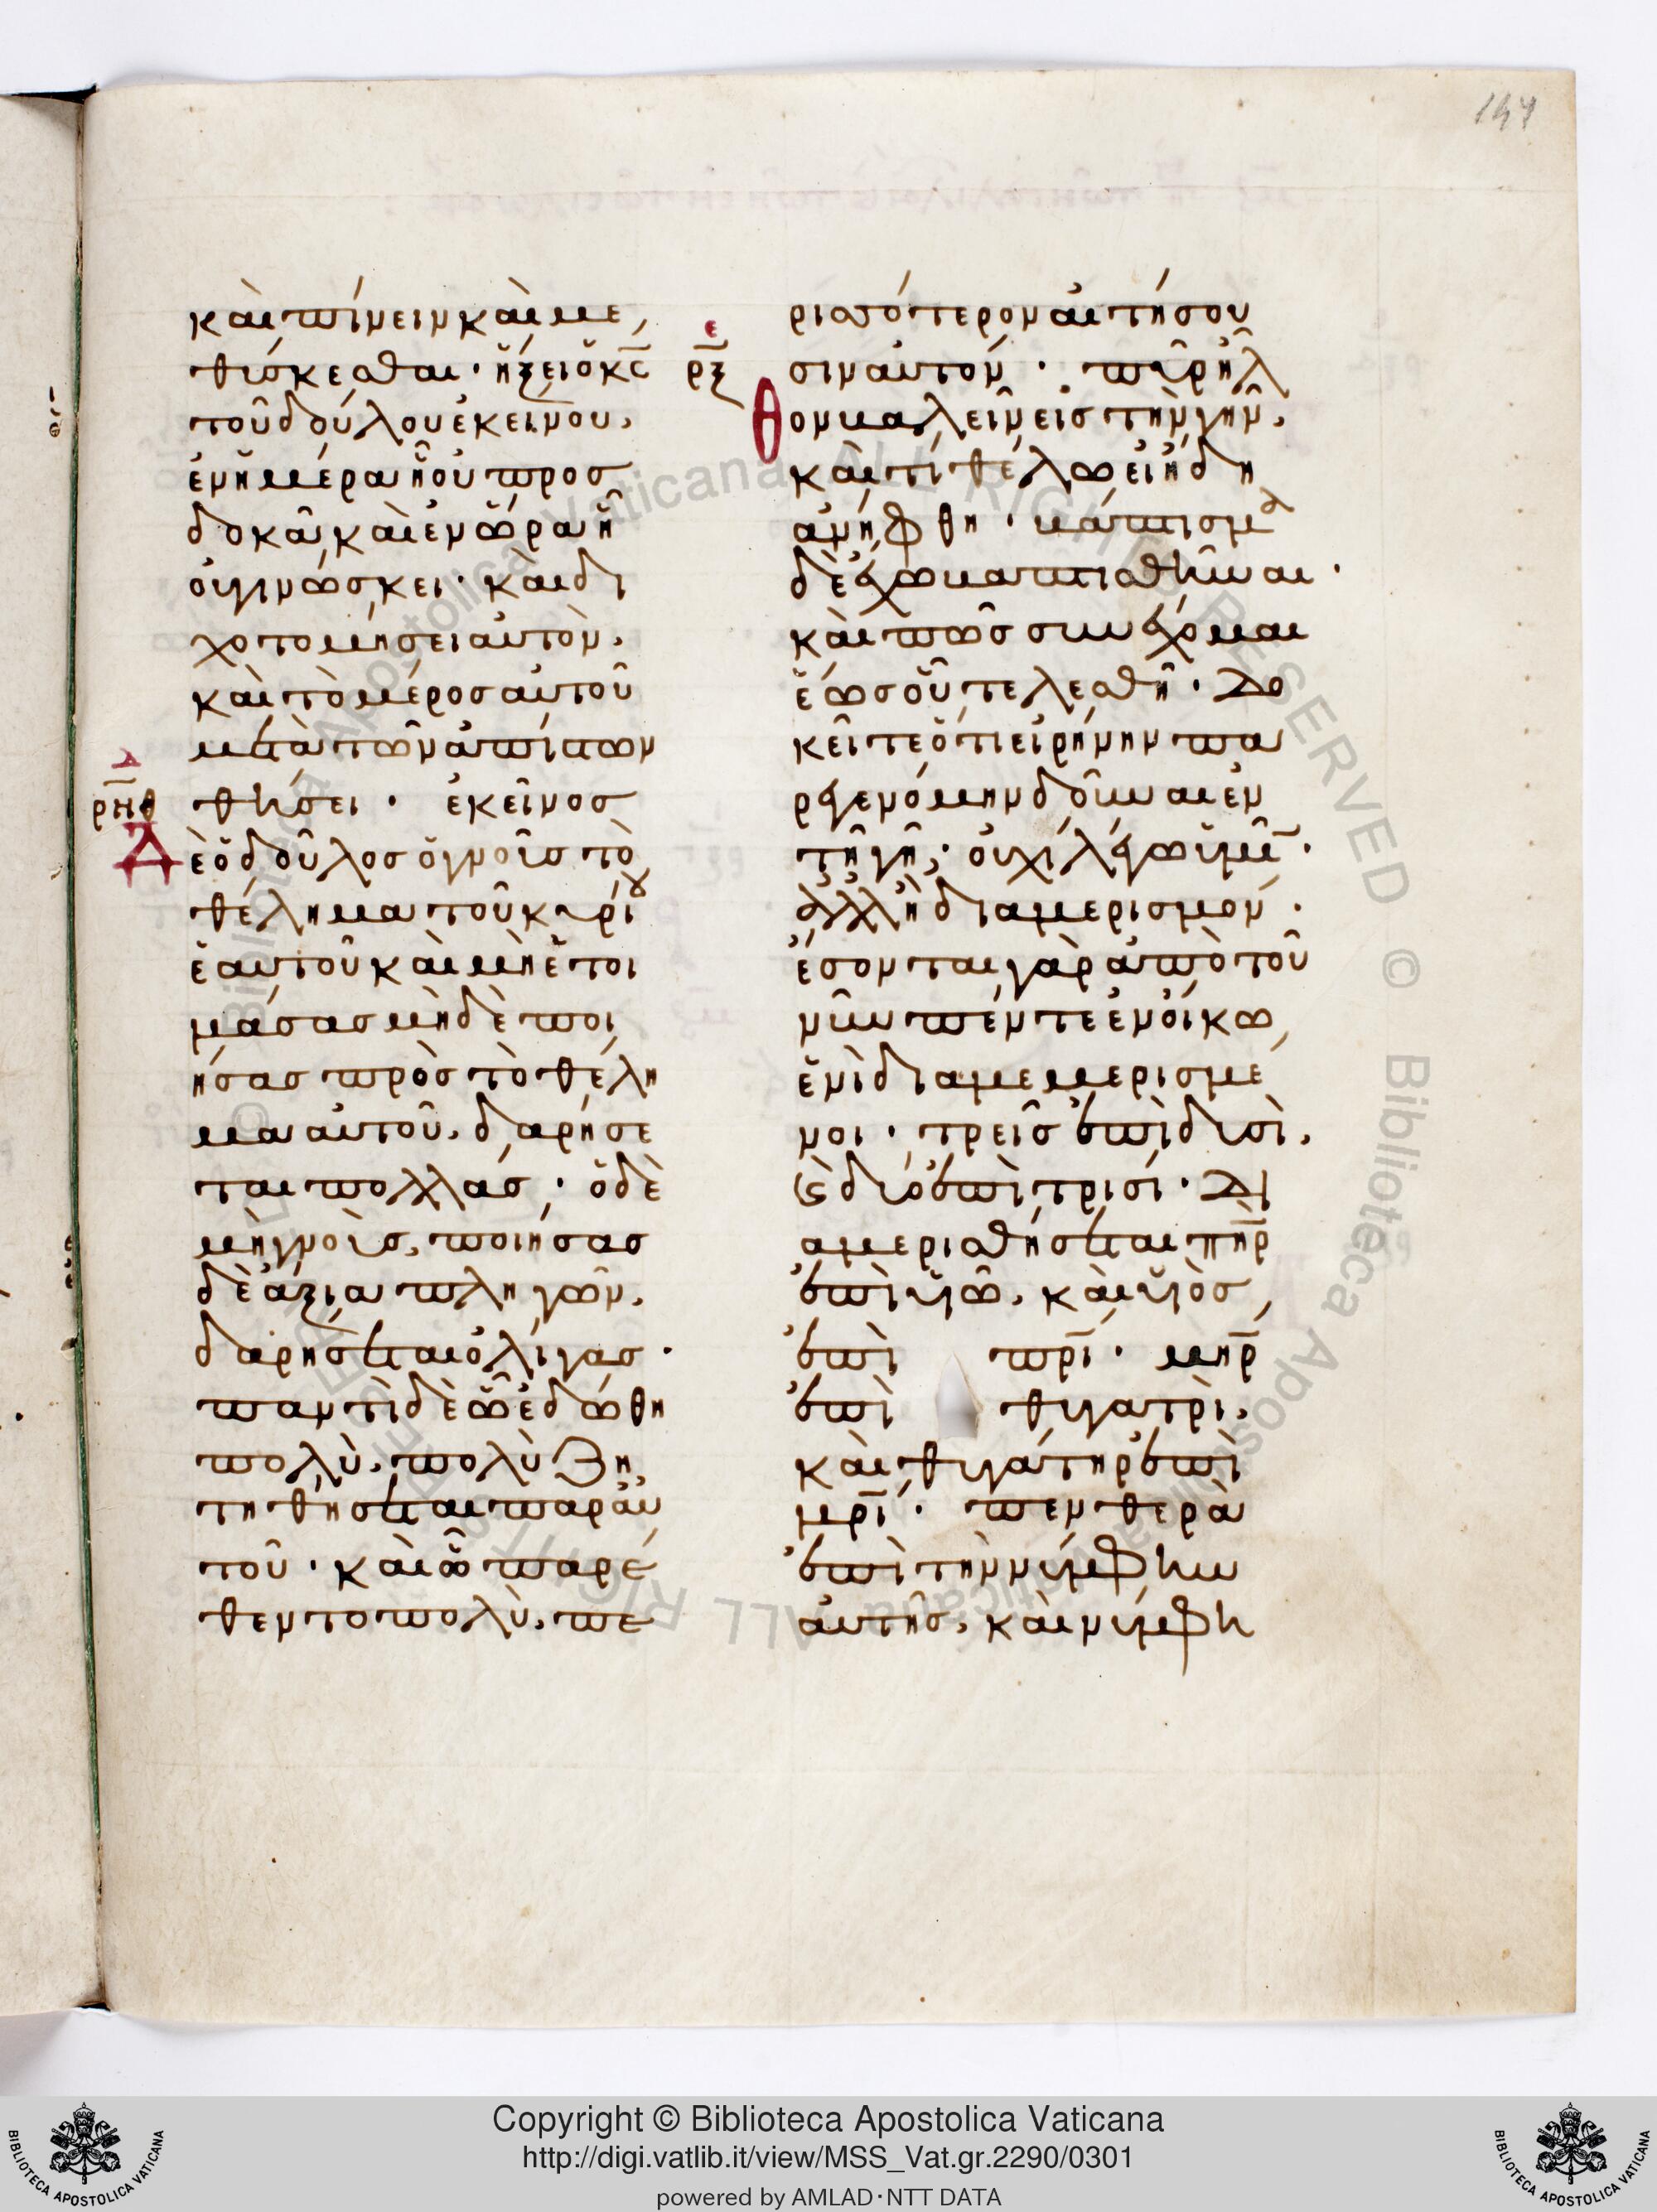 147
καὶ πίνειν καὶ με
θύσκεσθαι· ἥξει ὁ κς
τοῦ δούλου ἐκείνου,
ἐν ἡμέρα ἧ οὐ προσ
δοκᾶ, καὶ ἐν ὥρα ἧ
οὐ γινώσκει· καὶ δι
χοτομήσει αὐτὸν,
καὶ τὸ μέρος αὐτοῦ
μετὰ τῶν ἀπίστων
δ
ρνθ
θήσει· ἐκεῖνος
Δὲ ὁ δοῦλος ὁ γνοῦς τὸ
θέλημα τοῦ κυρίου
ἑαυτοῦ καὶ μὴ ἑτοι
μάσας μηδὲ ποι
ήσας πρὸς τὸ θέλη
μα αὐτοῦ, δαρήσε
ται πολλάς· ὁ δὲ
μὴ γνοὺς, ποιήσας
δὲ ἄξια πληγῶν,
δαρήσεται ὀλίγας·
παντὶ δὲ ὧ ἐδώθη
πολὺ, πολὺ ζη
τηθήσεται παρ αὐ
τοῦ· καὶ ὧ παρέ
θεντο πολὺ, πε
ρισσότερον αἰτήσου
ε
ρξ
σιν αὐτόν· πῦρ ἦλ
θον βαλεῖν εἰς τὴν γῆν,
καὶ τί θέλω εἰ ἤδη
ἀνήφθη· βάπτισμα
δὲ ἔχω βαπτισθῆναι·
καὶ πῶς συνέχομαι
ἕως οὗ τελεσθῆ· Δο
κεῖτε ὅτι εἰρήνην πα
ρεγενόμην δοῦναι ἐν
τῆ γῆ, οὐχὶ λέγω ὑμῖν·
ἀλλ ἢ διαμερισμόν·
ἔσονται γὰρ ἀπὸ τοῦ
νῦν πέντε ἐν οἴκω
ἑνὶ διαμεμερισμέ
νοι· τρεῖς ἐπὶ δυσὶ,
καὶ δύο ἐπὶ τρισί· Δι
αμερισθήσεται πηρ
ἐπὶ υἱῶ, καὶ υἱὸς
ἐπὶ πρι· μηρ
ἐπὶ θυγατρὶ,
καὶ θυγάτηρ ἐπὶ
μρι· πενθερὰ
ἐπὶ τὴν νύμφην
αὐτῆς, καὶ νύμφη
Copyright © Biblioteca Apostolica Vaticana
http://digi.vatlib.it/view/MSS_Vat.gr.2290/0301
powered by AMLAD·NTT DATA
BIBLIOTECA APOSTOLICA VATICANA
BIBLIOTECA APOSTOLICA VATICANA